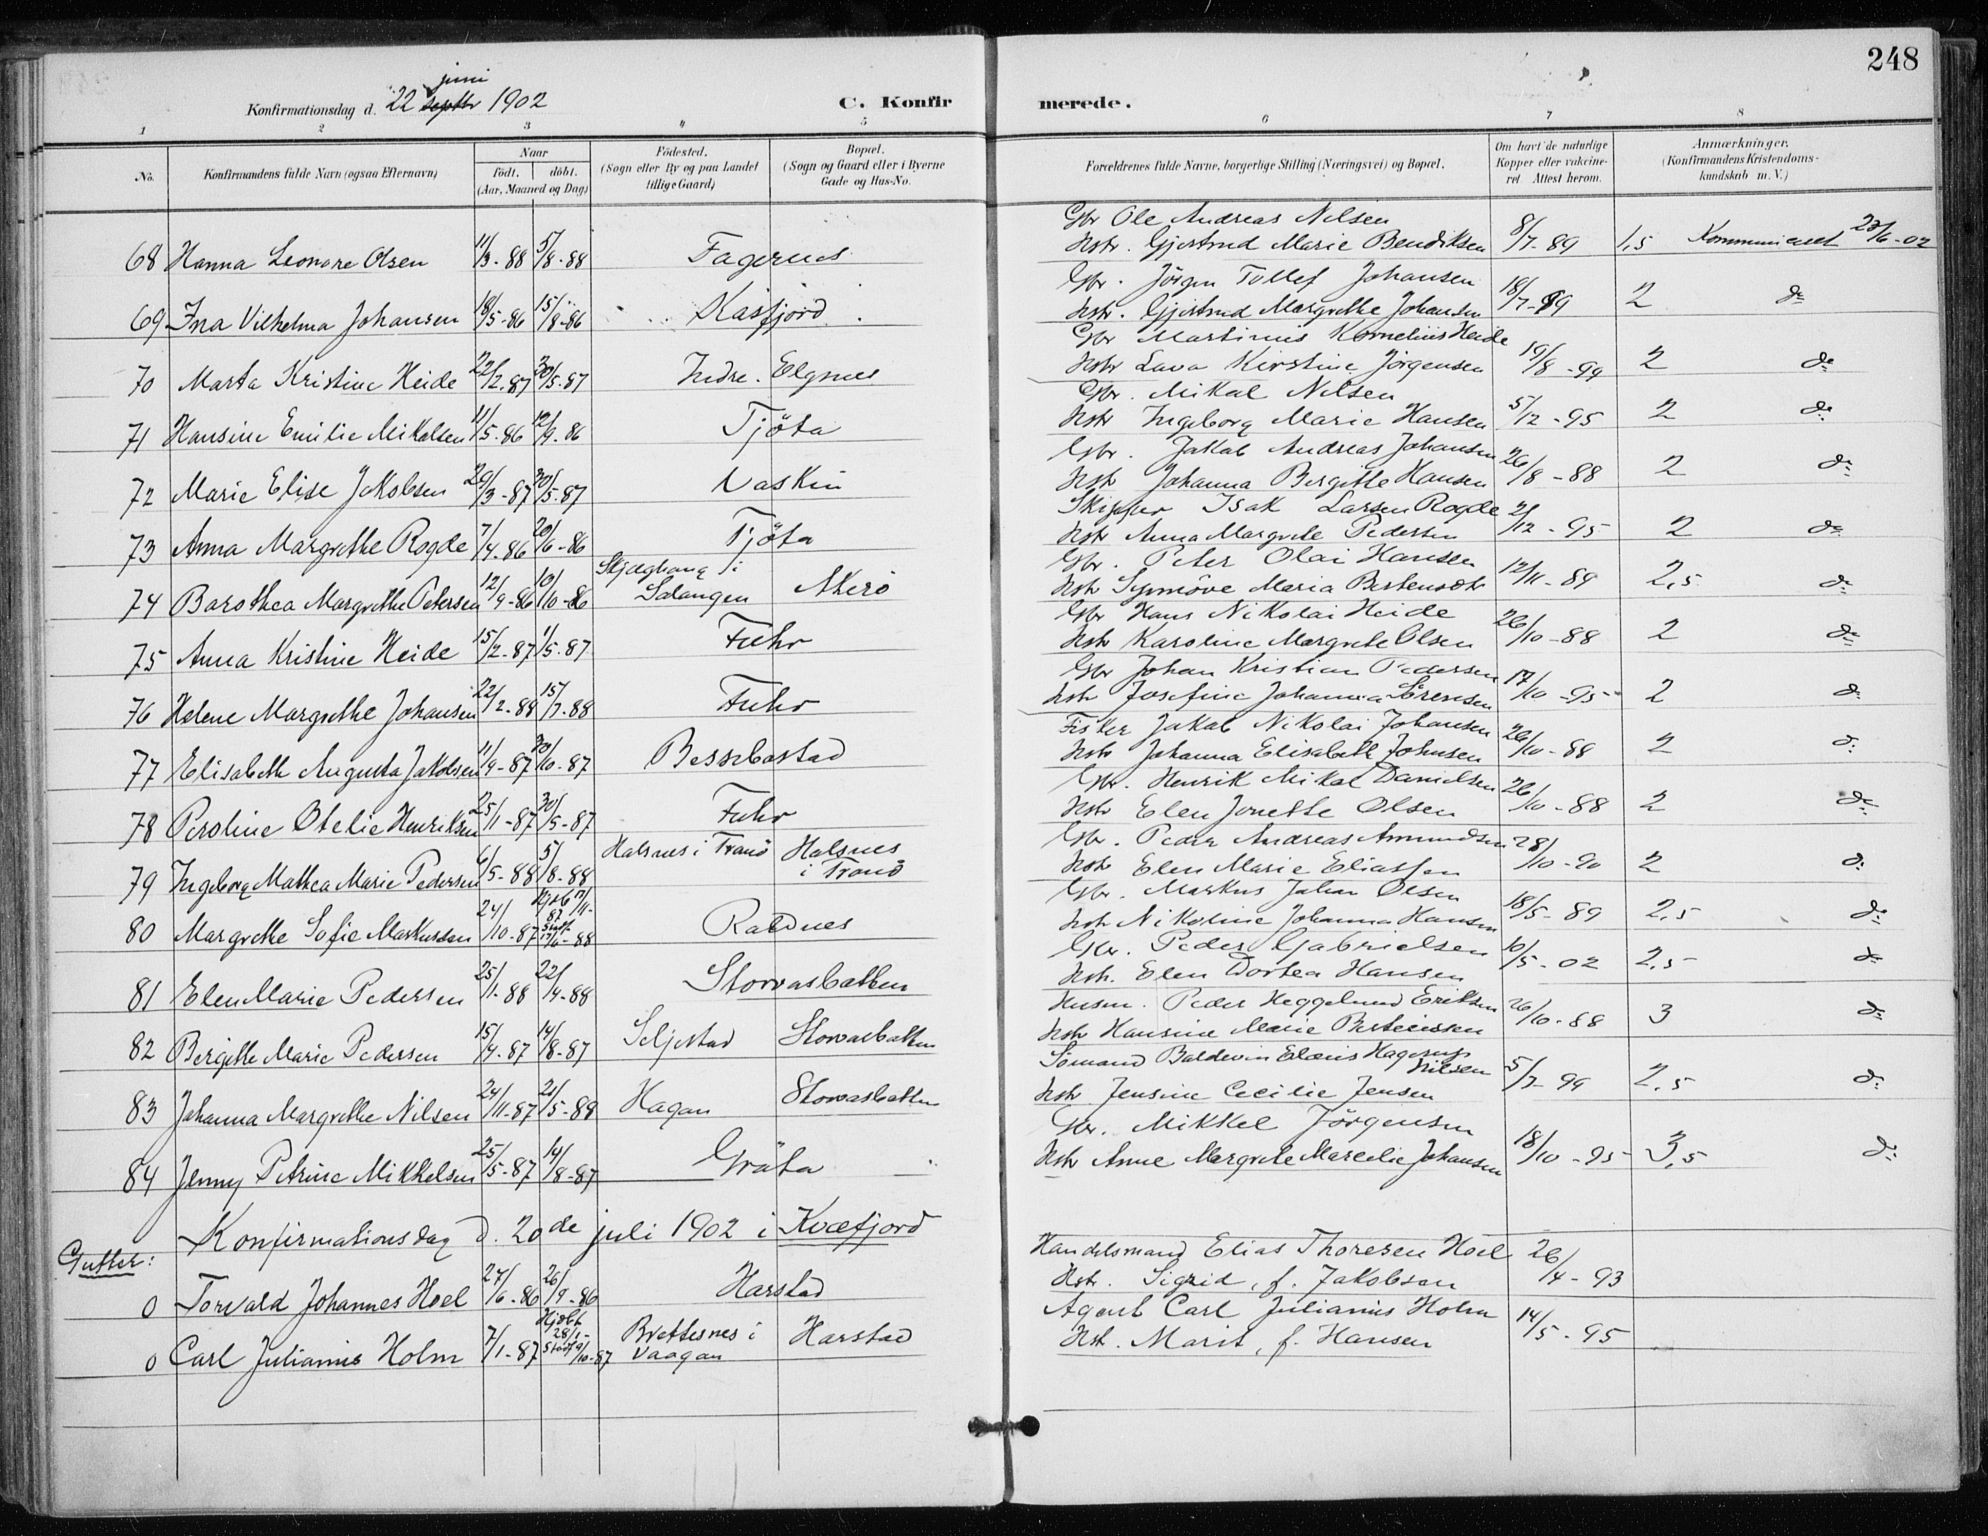 248
juni
Konfirmationsdag d. 22 septbr 1902 C. Konfir merede.
1 2 3 4 5 6 7 8
No. Konfirmandens fulde Navn (ogsaa Efternavn) Naar født. døbt. (Aar, Maaned og Dag) Fødested. (Sogn eller By og paa Landet tillige Gaard) Bopæl. (Sogn og Gaard eller i Byerne Gade og Hus-No. Forældrenes fulde Navne, borgerlige Stilling (Næringsvei) og Bopæl. Om havt de naturlige Kopper eller vakcineret. Attest herom. Anmærkninger. (Konfirmandens Kristendomskundskab m. V.)
Gbr Ole Andreas Nilsen
68 Hanna Leonore Olsen 11/3-88 5/8-88 Fagernes Hstr. Gjertrud Marie Bendiksen 8/7-89 1,5 Kommuniceret 23/6-02
Gbr. Jörgen Tollef Johansen
69 Ina Vilhelma Johansen 18/5-86 15/8-86 Kasfjord Hstr. Gjertrud Margrethe Johansen 18/7-99 2 do
Gbr Martinus Kornelius Heide
70 Marta Kristine Heide 22/2-87 30/5-87 Indre Elgsnes Hstr Lava Kirstine Jörgensen 19/8-99 2 do
Gbr. Mikal Nilsen
71 Hansine Emilie Mikalsen 11/5-86 12/9-86 Tjöta Hstr Ingeborg Marie Hansen 5/12-95 2 do
Gbr. Jakob Andreas Johansen
72 Marie Elise Jakobsen 29/3-87 30/5-87 Vaskin Hstr Johanna Bergitte Hansen 26/8-88 2 do
Skipper Isak Larsen Rogde
73 Anna Margrethe Rogde 7/4-86 20/6-86 Tjöta Hstr Anna Margrete Pedersen 21/12-95 2 do
Gbr. Peter Olai Hansen
74 Barothea Margrethe Petersen 12/9-86 10/10-86 i Salangen Akerö Hstr Synnöve Maria 12/11-89 2,5 do
Gbr Hans Nikolai Heide
75 Anna Kristine Heide 15/2-87 1/5-87 Fuhr Hstr Karoline Margrete Olsen 26/10-88 2 do
Gbr Johan Kristian Pedersen
76 Helene Margrethe Johansen 22/2-88 15/7-88 Fuhr Hstr Josefine Johanna Sörensen 17/10-95 2 do
Fisker Jakob Nikolai Johansen
77 Elisabeth Augusta Jakobsen 11/9-87 30/10-87 Bessebostad Hstr Johanna Elisabeth Johnsen 26/10-88 2 do
Gbr. Henrik Mikal Danielsen
78 Peroline Otelie Henriksen 25/1-87 30/5-87 Fuhr Hstr Elen Jonette Olsen 26/10-88 2 do
Gbr. Peder Andreas Amundsen
79 Ingeborg Mathea Marie Pedersen 6/5-88 5/8-88 Halsnes i Tranö Halsnes i Tranö Hstr Elen Marie Eliassen 28/10-90 2 do
Gbr. Markus Johan Olsen
80 Margrethe Sofie Markussen 24/10-87 Hjdöb 17/11-87 Stadf. 17/6-88 Rabnes Hstr Nikoline Johanna Hansen 18/5-89 2,5 do
Gbr. Peder Gabrielsen
81 Elen Marie Pedersen 25/1-88 22/4-88 Storvasbotten Hstr. Elen Dortea Hansen 10/5-02 2,5 do
Husm. Peder Heggelund Eriksen
82 Bergitte Marie Pedersen 15/4-87 14/8-87 Seljestad Storvasbotten Hstr Hansine Marie 26/10-88 3 do
Sömand Baldevin Hagerup Nilsen
83 Johanna Margrethe Nilsen 24/11-87 21/5-88 Hagan Storvasbotten Hstr Jensine Cecilie Jensen 5/7 99 2,5 do
Gbr. Mikkel Jörgensen
84 Jenny Petrine Mikkelsen 25/5-87 14/8-87 Gröta Hstr Anne Margrete Marcelie Johansen 18/10-95 3,5 do
Konfirmationsdag d. 20de juli 1902 i Kvæfjord
Gutter:
Handelsmand Elias Thoresen Hoel
0 Torvald Johannes Hoel 27/6-86 26/9-86 Harstad Hstr. Sigrid, f. Jakobsen 26/4-93
Agent Carl Julianus Holm
0 Carl Julianus Holm 7/1-87 Hjdöbt 28/1- Stadf 9/10-87 Brettesnes i Vaagan Harstad Hst. Marit, f. Hansen 14/5-95